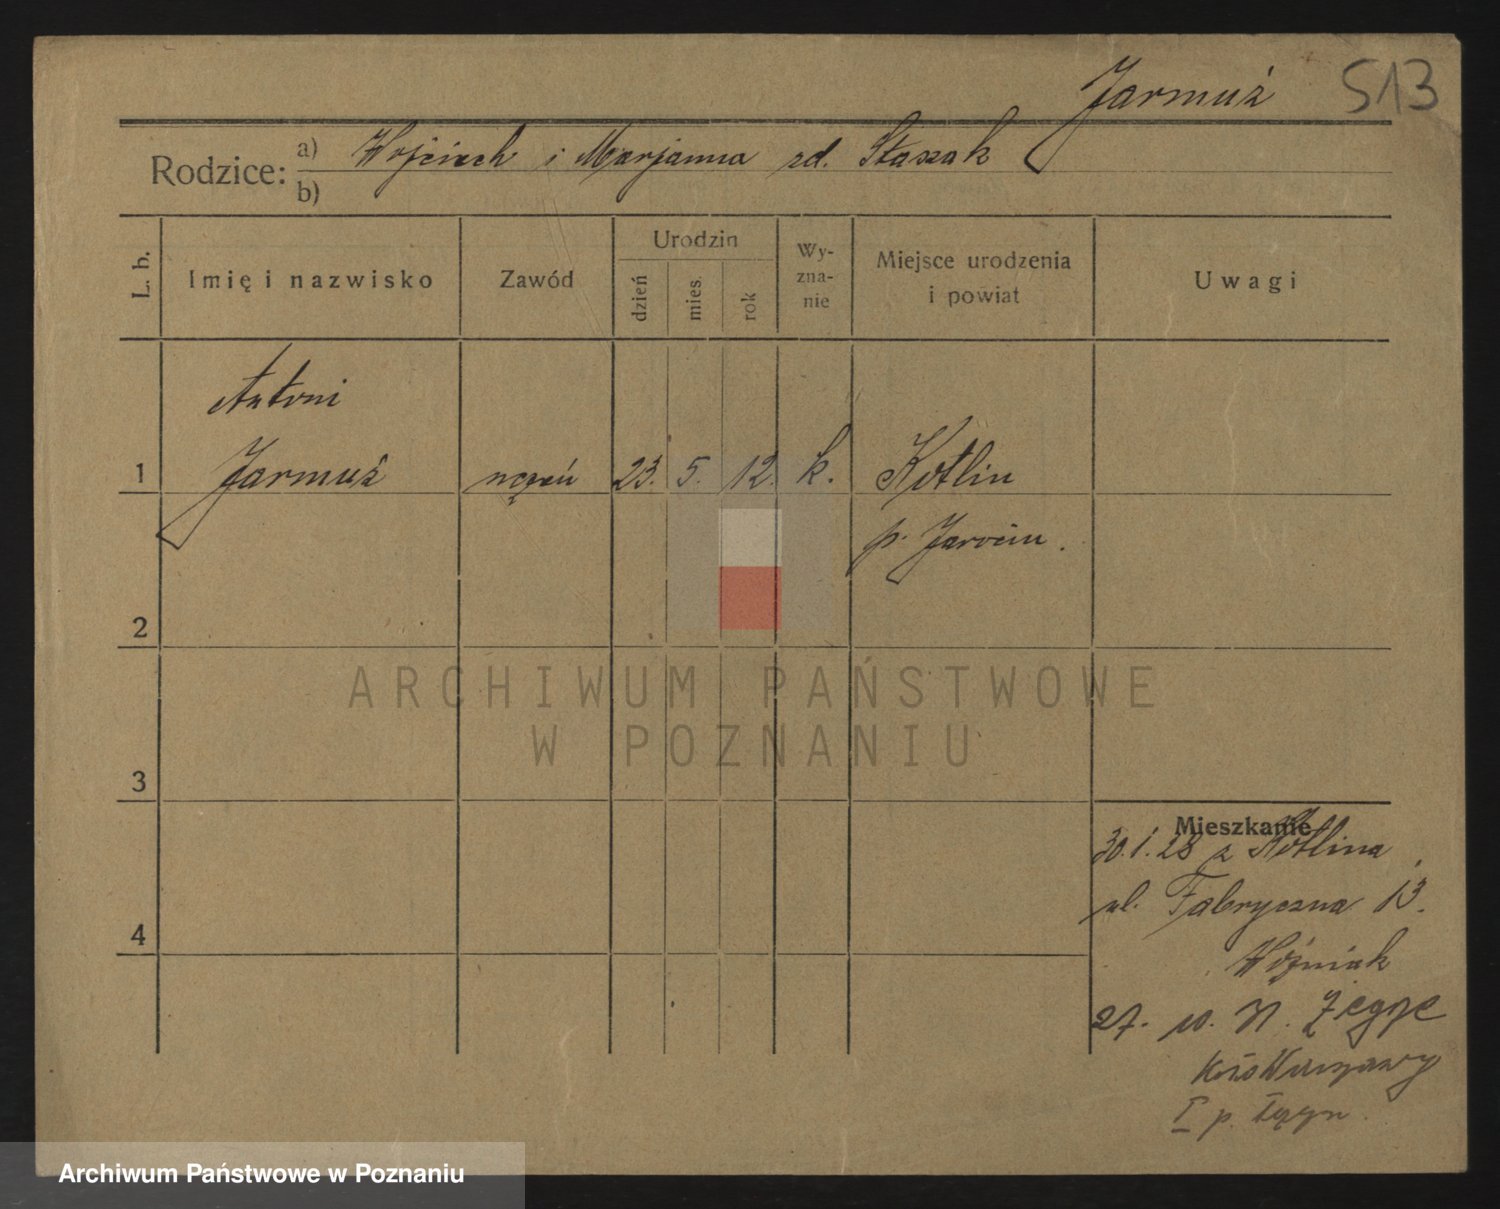 Jarmuż 513
Rodzice: a) Wojciech i Marjanna zd. Staszak
b)
L. b.
Imię i nazwisko
Zawód
Urodzin
dzień
mies.
rok
Wy-
zna-
nie
Miejsce urodzenia
i powiat
Uwagi
Antoni
1 Jarmuż uczeń 23. 5. 12. k. Kotlin
p. Jarocin.
2
ARCHIWUM PAŃSTWOWE
W POZNANIU
3
Mieszkanie
30.1.28 z Kotlina
4 ul. Fabryczna 13.
Woźniak
27.
I p.
Archiwum Państwowe w Poznaniu